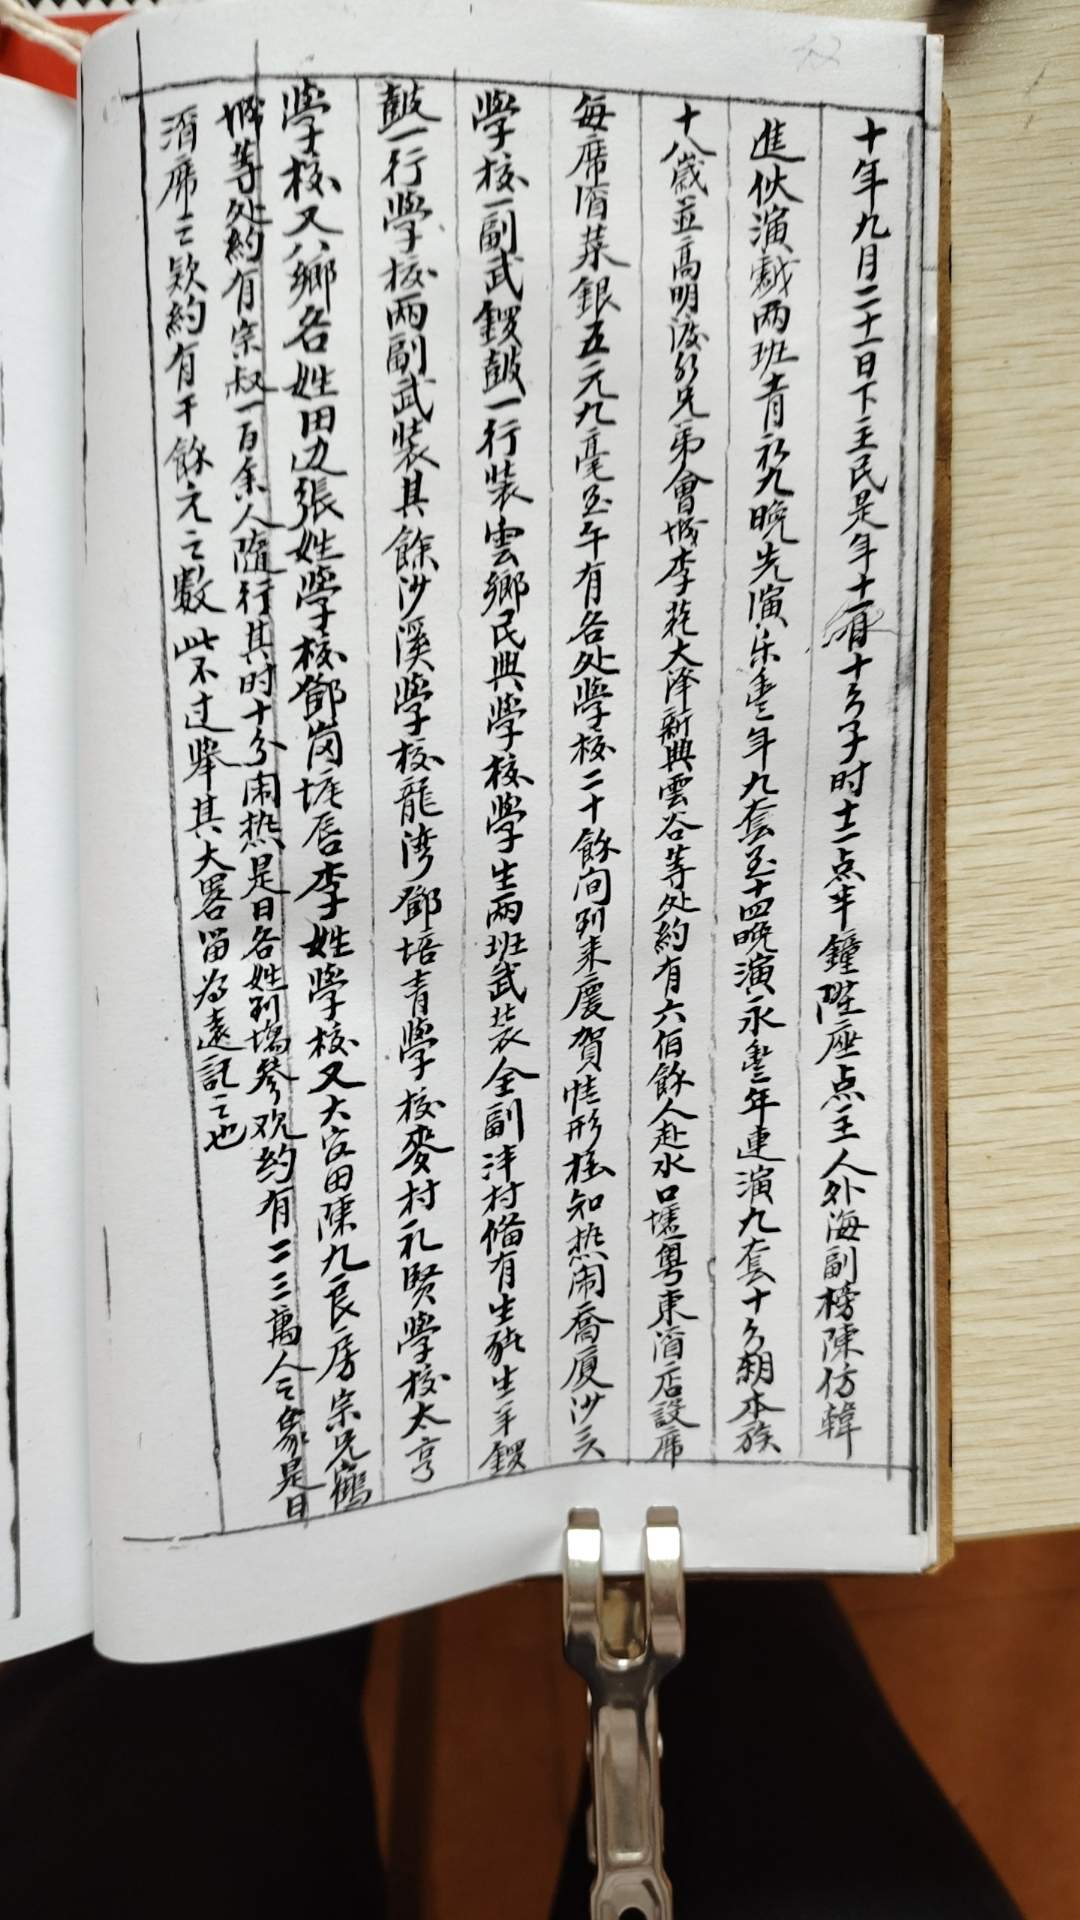 十年九月二十一日下主民是年十一月十八子时十二点半鐘陞座点主人外海副榜陳仿韓
進伙演戲两班青衣九晚先演乐豊年九套至十四晚演永豊年連演九套十八朝本族
十八歲並高明渡頭兄弟會城李苑大泽新興雲谷等处約有六伯餘人赴水口墟粤東酒店設席
每席酒菜銀五元九毫至午有各处學校二十餘间到来慶賀情形極知热闹喬厦沙頭
学校一副武鑼鼓一行装雲鄉民興學校學生两班武装全副泮村俻有生猪生羊鑼
鼓一行學校两副武装其餘沙溪學校龍湾鄧培青學校麥村礼贤學校太亨
學校又八鄉各姓田边張姓學校鄧岗塘唇李姓學校又大安田陳九良房宗兄鶴
城等处約有宗叔一百余人隨行其时十分闹热是日各姓到塲參观约有二三萬人之象是日
酒席之欵約有千餘元之數此不过举其大畧留為遠記之也